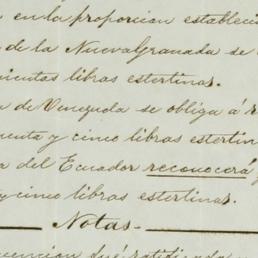 en la proporcion estableci
de la Nueva Granada se
nientas libras esterlinas.
de Venezuela se obliga á
enta y cinco libras esterlin
del Ecuador reconocerá
y cinco libras esterlinas.
Notas.